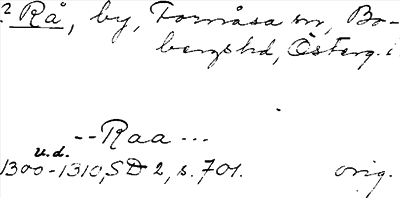 ? Rå, by, Fornåsa sn, Bo-
bergshd, Österg.
--Raa---
u.d.
1300-1310, SD 2, s. 701. orig.